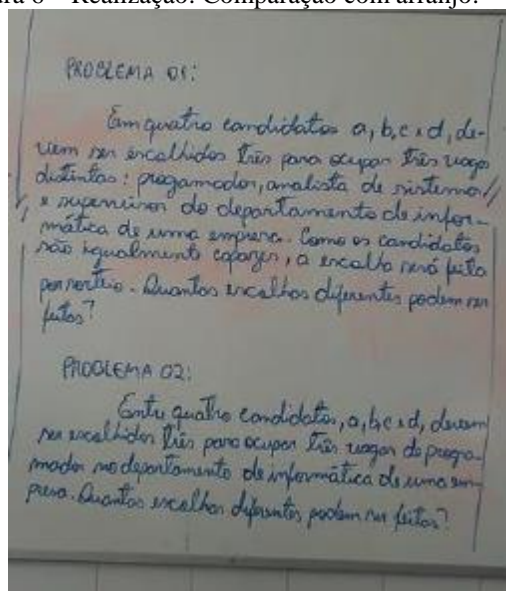 ra 6 – Realização: Comparação com arranjo.
PROBLEMA 01:
Em quatro candidatos a, b, c e d, de-
vem ser escolhidos três para ocupar três vagas
distintas: progamador, analista de sistemas
e supervisor do departamento de infor-
mática de uma empresa. Como os candidatos
são igualmente capazes, a escolha será feita
por sorteio. Quantas escolhas diferentes podem ser
feitas?
PROBLEMA 02:
Entre quatro candidatos, a, b, c e d, devem
ser escolhidos três para ocupar três vagas de progra-
mador no departamento de informática de uma em-
presa. Quantas escolhas diferentes podem ser feitas?